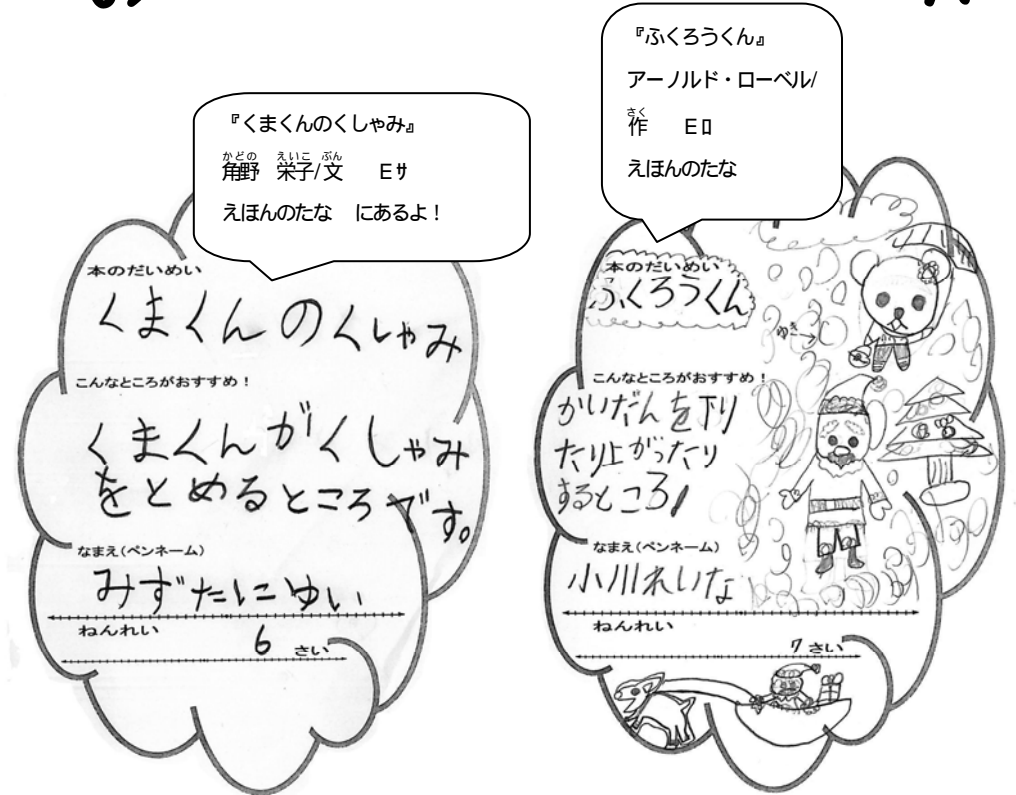 『くまくんのくしゃみ』
角野 栄子/文 Eサ
えほんのたな にあるよ！
本のだいめい
くまくんのくしゃみ
こんなところがおすすめ！
くまくんがくしゃみ
をとめるところです。
なまえ(ペンネーム)
みずたにゆい
ねんれい
6 さい
『ふくろうくん』
アーノルド・ローベル/
作 Eロ
えほんのたな
本のだいめい
ふくろうくん
ゆき→
こんなところがおすすめ！
かいだんを下り
たり上がったり
するところ！
なまえ(ペンネーム)
小川れいな
ねんれい
7 さい